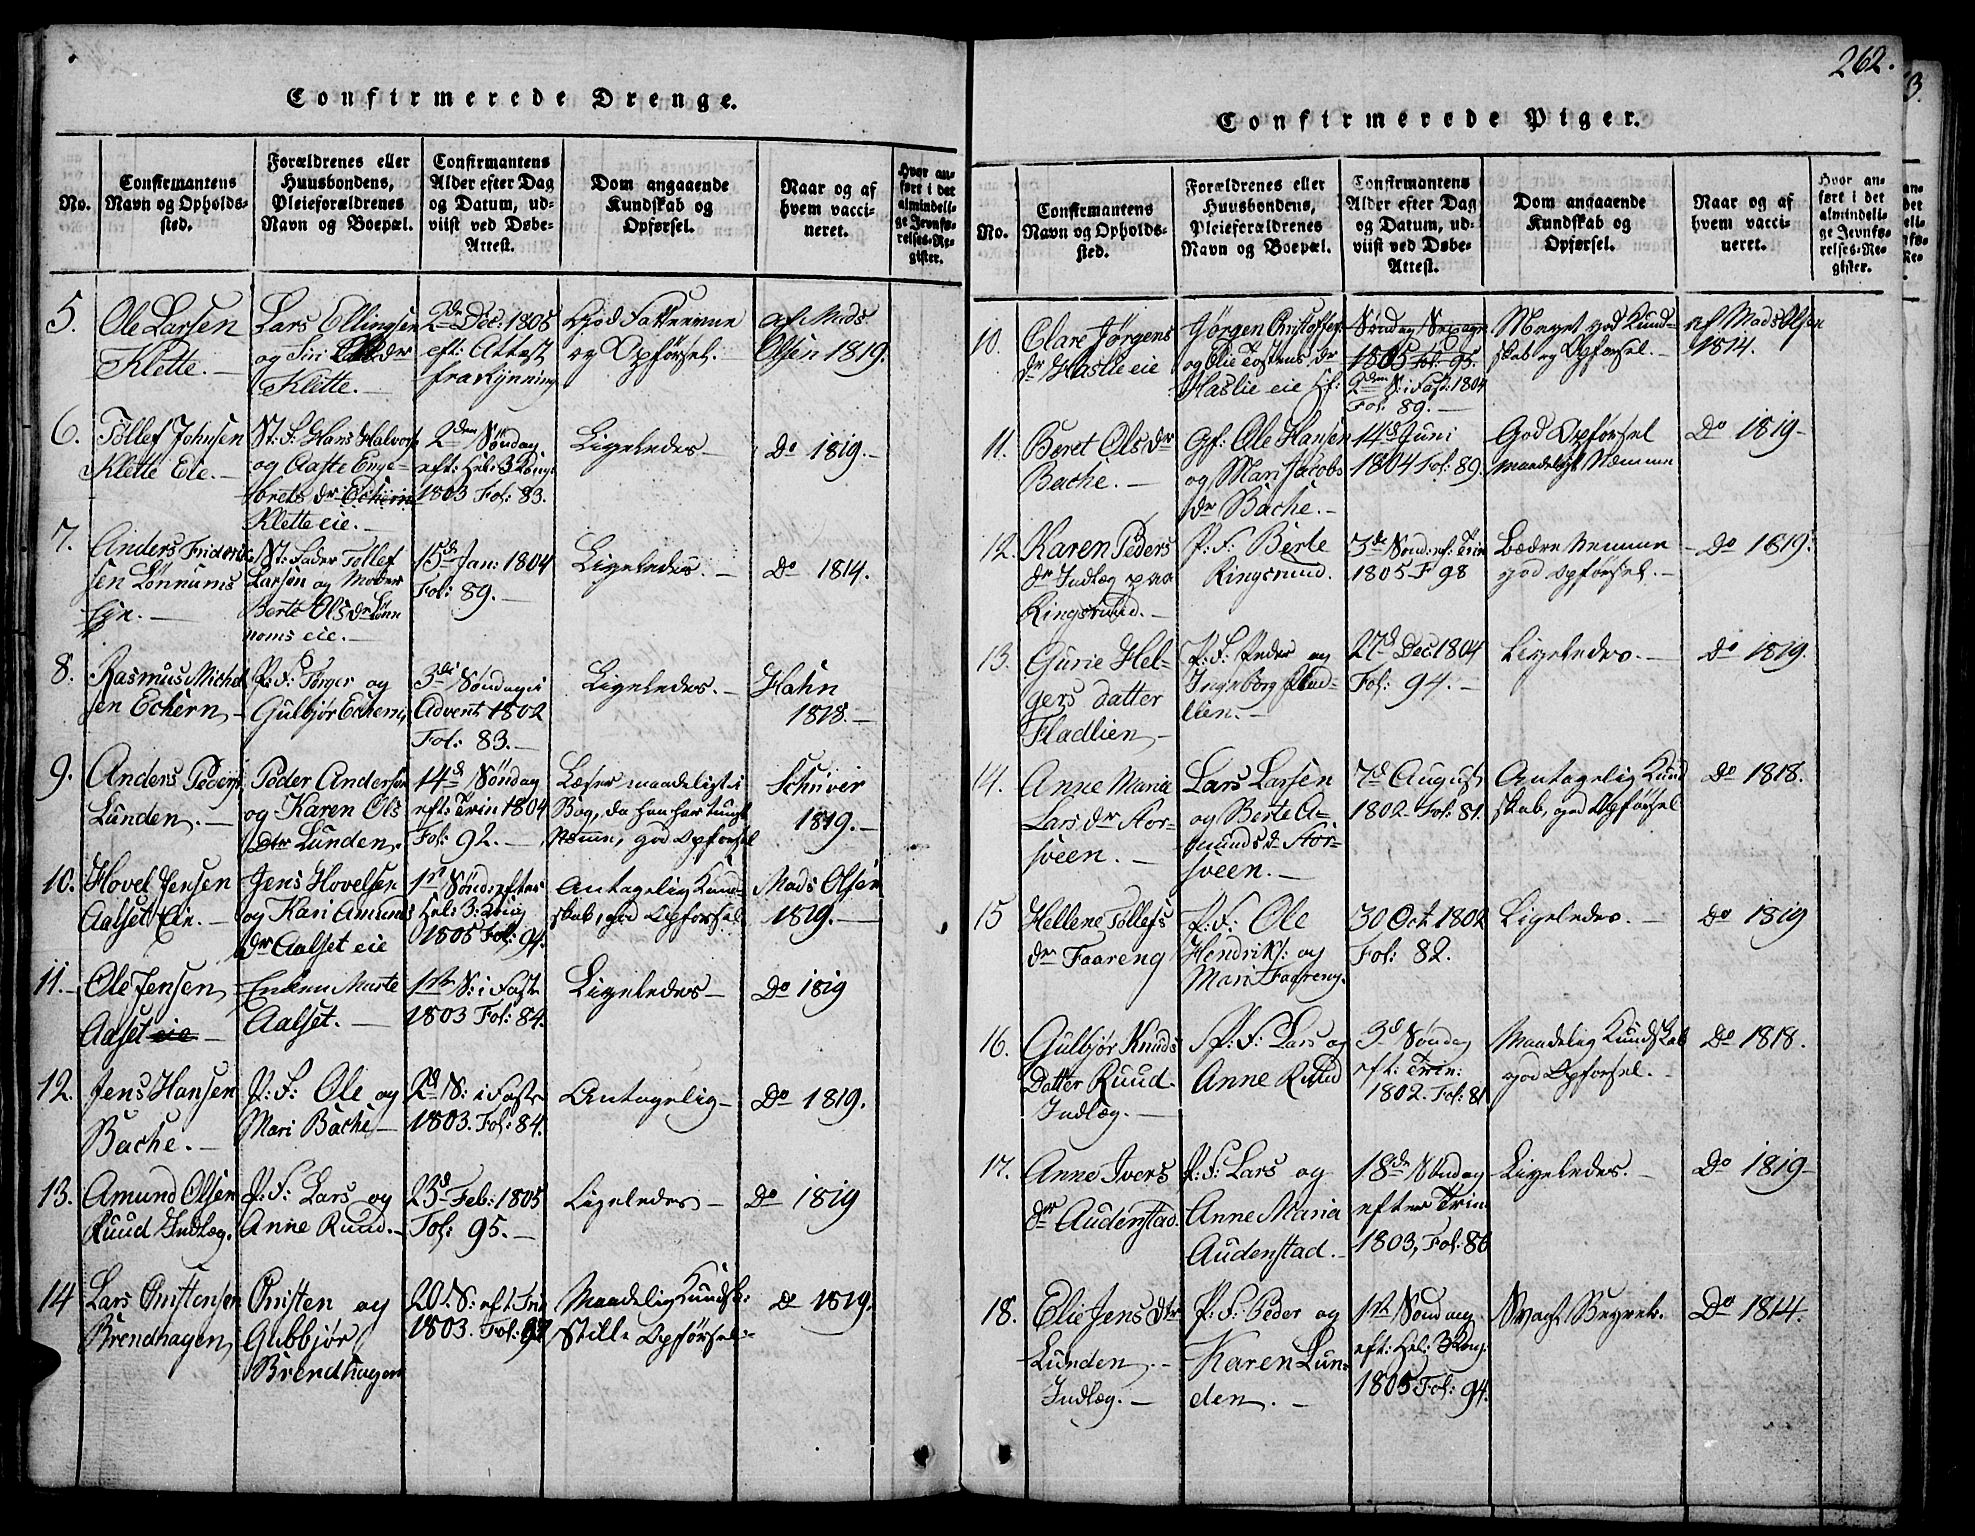 Confirmerede Drenge.
No.
Confirmantens
Navn og Opholds-
sted.
Forældrenes eller
Huusbondens,
Pleieforældrenes
Navn og Boepæl.
Confirmantens
Alder efter Dag
og Datum, ud-
viist ved Døbe-
Attest.
Dom angaaende
Kundskab og
Opførsel.
Naar og af
hvem vacci-
neret.
Hvor an-
ført i det
almindeli-
ge Jevnfø-
relses-Re-
gister.
5.
Ole Larsen
Klette. -
Lars Ellingsen
og Siri
Klette. -
2den Dec: 1805
eft: Attest
fra
God
og Opførsel. -
af Mads
Olsen 1819.
6.
Tollef Johnsen
Klette Eie. -
St: F: Hans Halvors
og Aaste Enge-
brets dr Eckern
Klette eie. -
2den Søndag
eft: Hel: 3 Kong:
1803 Fol: 83.
Ligeledes -
Do 1819. -
7.
Anders Friderik-
sen Lønnums
Eje. -
St: Fader Tollef
Larsen og Moder
Berte Ols dr Løn
noms eie. -
15de Jan: 1804
Fol: 89. -
Ligeledes. -
Do 1814.
8.
Rasmus Michel
sen Eckern -
P: F: Torger og
Gulbjør Eckern
3die Søndag i
Advent 1802
Fol: 83. -
Ligeledes. -
Hahn
1818. -
9.
Anders Peders
Lunden. -
Peder Andersen
og Karen Ols
Dtr Lunden.
14de Søndag
eft: Trin 1804
Fol: 92. -
Læser maadeligt i
Bog, da han har tungt
Nemme, god Opførsel
Schriver
1819. -
10.
Hovel Jensen
Aalset Eie. -
Jens Hovelsen
og Kari Amunds
dr Aalset eie
1st Sønd: efter
Hel: 3: Kong
1805 Fol: 94.
Antagelig Kund-
skab, god Opførsel
Mads Olsen
1819. -
11. -
Ole Jensen
Aalset eie -
Enken Marte
Aalset. -
1ste S: i Faste
1803 Fol: 84.
Ligeledes -
Do 1819
12.
Jens Hansen
Bache. -
P: F: Ole og
Mari Bache -
2d S: i Faste
1803. Fol: 84.
Antagelig -
Do 1819.
13.
Amund Olsen
Ruud Indlæg.
P: F: Lars og
Anne Ruud. -
23d Feb: 1805
Fol: 95. -
Ligeledes -
Do 1819
14
Lars Christensen
Brendhagen
Christen og
Gubbjør
Brendhagen
20. S: eft: Tri
1803. Fol:
Maadelig Kundsk:
Stille Opførsel: -
do 1819.
262.
Confirmerede Piger.
No.
Confirmantens
Navn og Opholds-
sted.
Forældrenes eller
Huusbondens,
Pleieforældrenes
Navn og Boepæl.
Confirmantens
Alder efter Dag
og Datum, ud-
viist ved Døbe-
Attest.
Dom angaaende
Kundskab og
Opførsel.
Naar og af
hvem vacci-
neret.
Hvor an-
ført i det
almindeli-
ge Jevnfø-
relses-Re-
gister.
10.
Clare Jørgens
dr Haslie eie
Jørgen Christoffers
og Elie Tostens dr
Haslie eie
Søndag Sexages
1805 Fol: 95.
2den S: i Fast: 1804
Fol: 89. -
Meget god Kund-
skab og Opførsel. -
af Mads Olsen
1814.
11.
Beret Ols dr
Bache. -
Gf: Ole Hansen
og Mari Jacobs
dr Bache. -
14d Juni
1804 Fol: 89.
God Opførsel
maadeligt Nemme
Do 1819 -
12.
Karen Peders
dr Indlæg paa
Ringsrud. -
P: F: Berte
Ringsrund.
3de Sønd: ef: Trin
1805 F 98
Bedre Nemme
god Opførsel. -
Do 1819.
13.
Gurie Hel-
gers datter
Fladlien -
P: F: Peder og
Ingeborg Flad-
lien. -
27d Dec: 1804
Fol: 94. -
Ligeledes. -
do 1819.
14.
Anne Maria
Lars dr Stor-
sveen. -
Lars Larsen
og Berte A-
munds dr Stor-
sveen. -
7d August
1802 Fol: 81.
Antagelig Kund
skab, god Opførsel
Do 1818.
15
Hellene Tollefs
dr Faareng
P: F: Ole
Hendriks: og
Mari Faareng.
30 Oct 1802
Fol: 82.
Ligeledes. -
Do 1819
16.
Gulbjør Knuds
Datter Ruud
Indlæg. -
P: F: Lars og
Anne Ruud
3d Søndag
eft: Trin:
1802. Fol: 81
Maadelig Kundskab
god Opførsel. -
Do 1818.
17.
Anne Ivers
dr Audenstad.
P: F: Lars og
Anne Maria
Audenstad. -
18de Søndag
efter Trin
1803, Fol: 86
Ligeledes. -
Do 1819 -
18.
Elie Jens dtr
Lunden. -
Indlæg. -
P: F: Peder og
Karen Lun-
den. -
1ste Søndag
eft: Hel: 3 Kong.
1805 Fol: 94.
Svagt Begreb.
Do 1814.